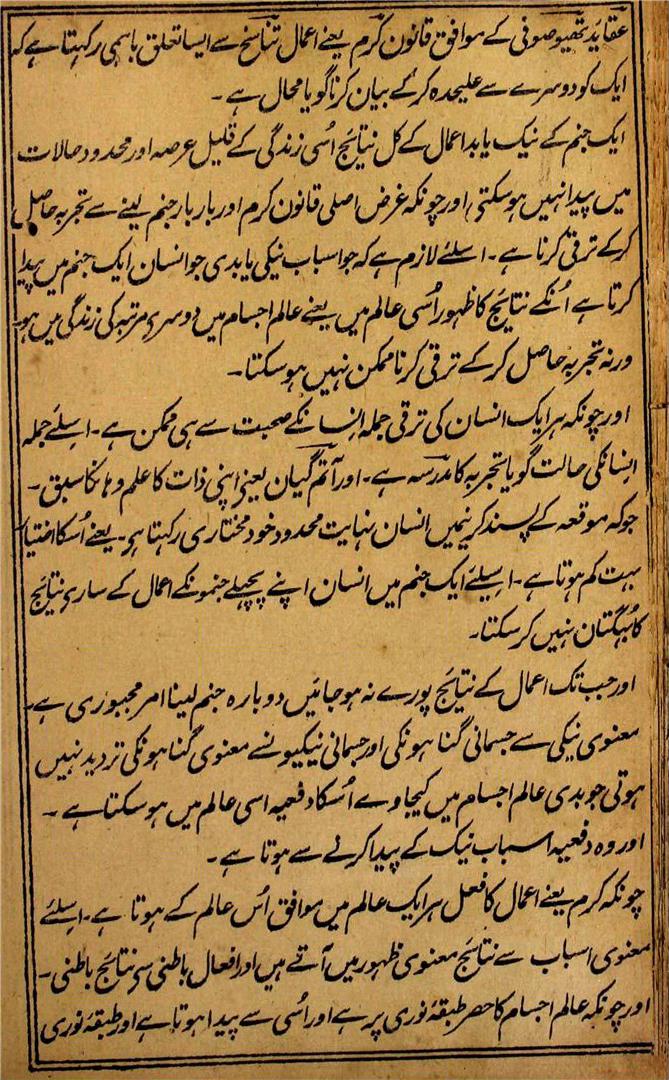 عقاید تھیوصوفی کے موافق قانون کرم یعنے اعمال تناسخ سے ایسا تعلق باہمی رکہتا ہے کہ
ایک کو دوسرے سے علیحدہ کر کے بیان کرنا گویا محال ہے ۔
ایک جنم کے نیک یا بد اعمال کے کل نتایج اُسی زندگی کے قلیل عرصہ اور محدود حالات
میں پیدا نہیں ہو سکتی اور چونکہ غرض اصلی قانون کرم اور بار بار جنم لینے سے تجربہ حاصل
کر کے ترقی کرنا ہے ۔ اسلئے لازم ہے کہ جو اسباب نیکی یا بدی جو انسان ایک جنم میں پیدا
کرتا ہے اُنکے نتایج کا ظہور اُسی عالم میں یعنے عالم اجسام میں دوسرے مرتبہ کی زندگی میں ہو
ورنہ تجربہ حاصل کر کے ترقی کرنا ممکن نہیں ہو سکتا ۔
اور چونکہ ہر ایک انسان کی ترقی جملہ انسانکے صحبت سے ہی ممکن ہے ۔ اسلئے جملہ
انسانکی حالت گویا تجربہ کا مدرسہ ہے ۔ اور آتم گیان یعنے اپنی ذات کا علم وہانکا سبق ۔
جو کہ موقعہ کے پسند کرنیمیں انسان نہایت محدود خود مختاری رکہتا ہو ۔ یعنے اُسکا اختیار
بہت کم ہوتا ہے ۔ اسیلئے ایک جنم میں انسان اپنے پچہلے جنمونکے اعمال کے ساری نتایج
کا بُہگتان نہیں کر سکتا ۔
اور جب تک اعمال کے نتایج پورے نہ ہو جائیں دوبارہ جنم لینا امر مجبوری ہے ۔
معنوی نیکی سے جسمانی گناہونکی اور جسمانی نیکیونسے معنوی گناہونکی تردید نہیں
ہوتی جو بدی عالم اجسام میں کیجاوے اُسکا دفعیہ اسی عالم میں ہو سکتا ہے ۔
اور وہ دفعیہ اسباب نیک کے پیدا کرنے سے ہوتا ہے ۔
چونکہ کرم یعنے اعمال کا فعل ہر ایک عالم میں موافق اُس عالم کے ہوتا ہے ۔ اسلئے
معنوی اسباب سے نتایج معنوی ظہور میں آتے ہیں اور افعال باطنی سے نتایج باطنی ۔
اور چونکہ عالم اجسام کا حصر طبقۂ نوری پر ہے اور اُسی سے پیدا ہوتا ہے اور طبقۂ نوری